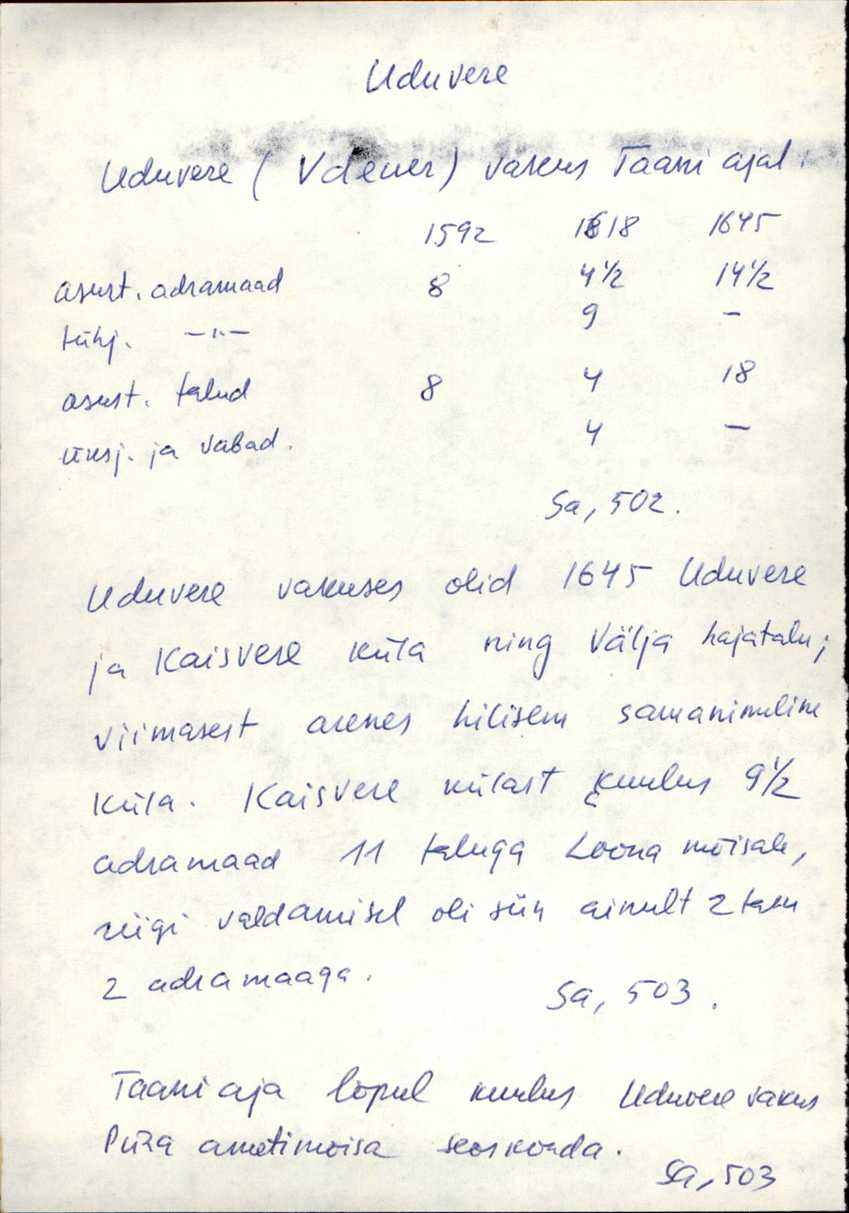 Uduvere
Uduvere (Vdeuer) vakus Taani ajal.
1592 1618 1645
asust. adramaad 8 4 1/2 14 1/2
tühj. —"— 9 –
asust. talud 8 4 18
üksj. ja vabad. 4 –
Sa, 502.
Uduvere vakuses olid 1645 Uduvere
ja Kaisvere küla ning Välja hajatalu;
viimasest arenes hilisem samanimeline
küla. Kaisvere külast kuulus 9 1/2
adramaad 11 taluga Loona mõisale,
riigi valdamisel oli siin ainult 2 talu
2 adramaaga.
Sa, 503.
Taani aja lõpul kuulus Uduvere vakus
Piha ametimõisa seoskonda.
Sa, 503